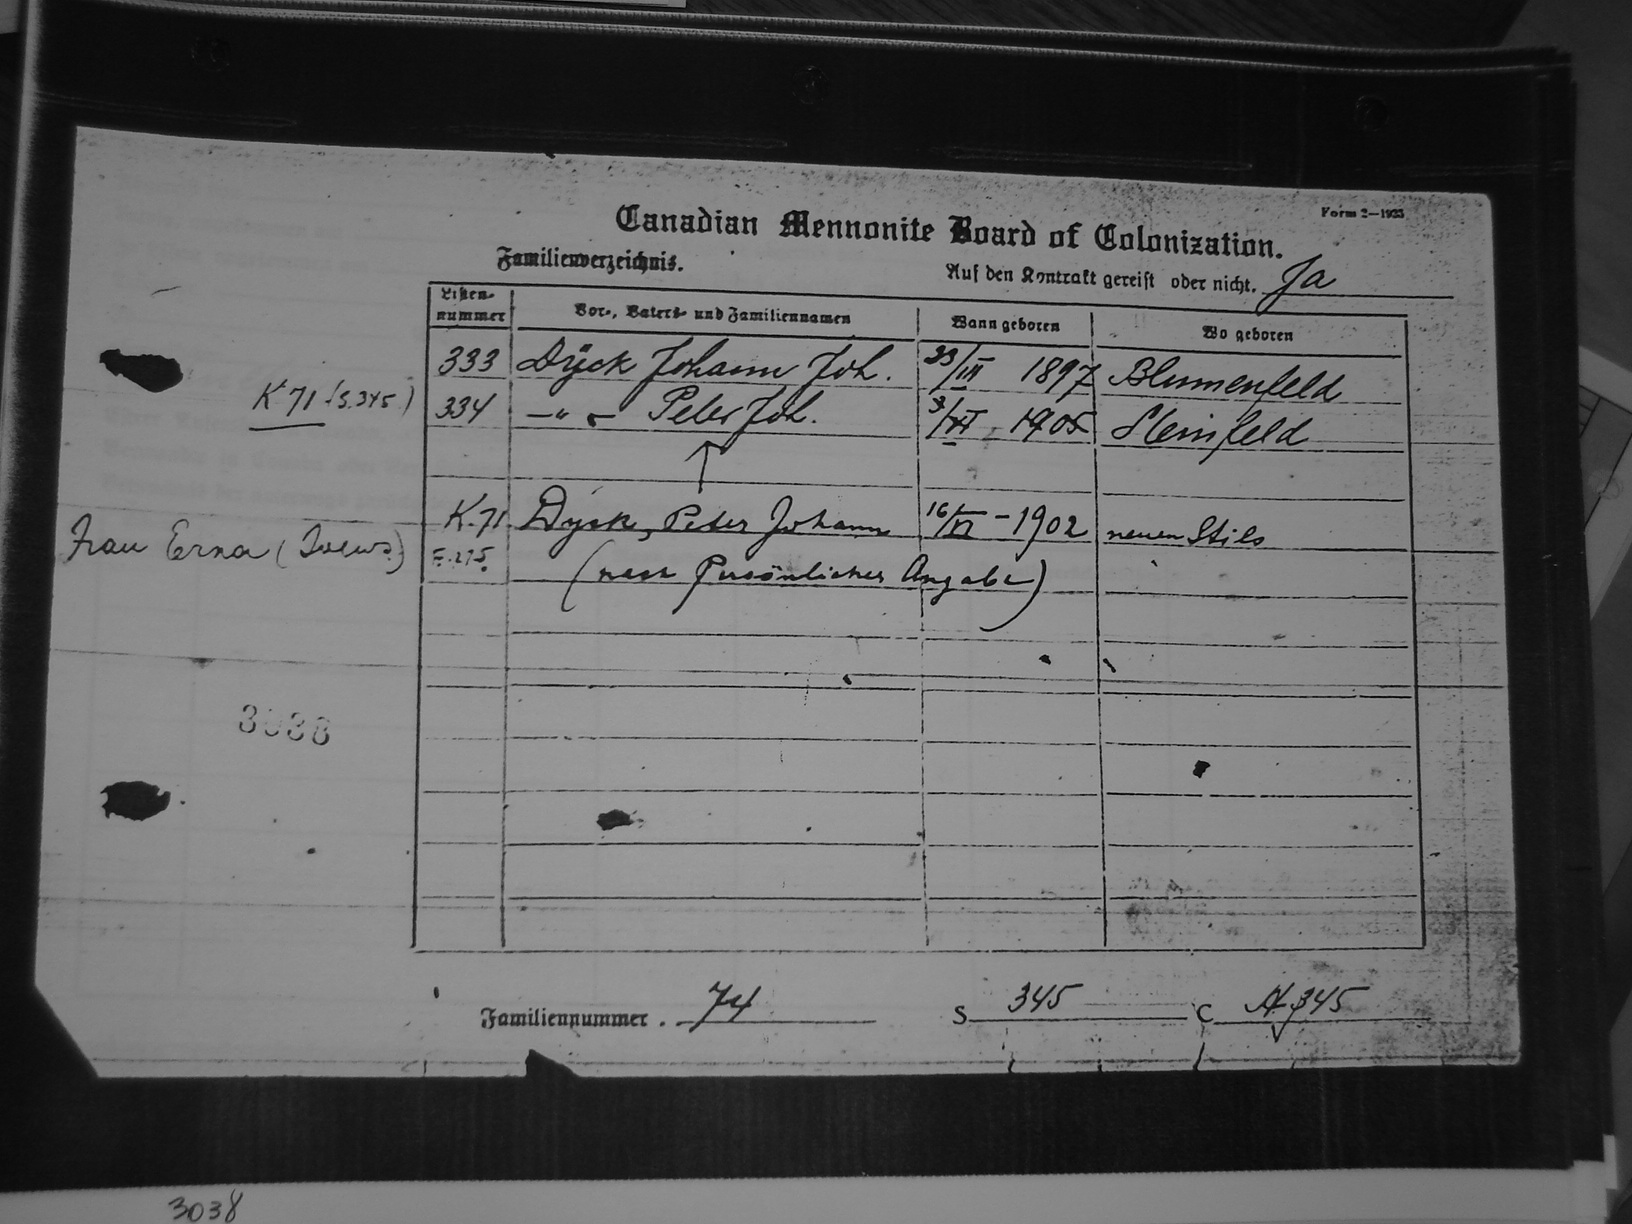 Form 2—1925
Canadian Mennonite Board of Colonization.
Familienverzeichnis.
Auf den Kontrakt gereist oder nicht. Ja
Listen-nummer Vor-, Vaters- und Familiennamen Wann geboren Wo geboren
333 Dÿck Johann Joh. 23/III 1897 Blumenfeld
K 71 (S.345)
334 —"— Peter Joh. 3/XI 1905 Steinfeld
K. 71 Dyck, Peter Johann 16/XI - 1902 neuen Stils
Frau Erna (Toews)
(nach Persönlicher Angabe)
3038
Familiennummer. 74 S 345 C 345
3038